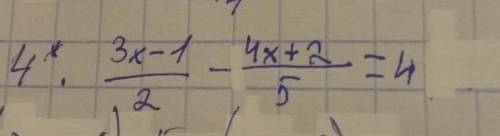 4*. (3x-1)/2 - (4x+2)/5 = 4